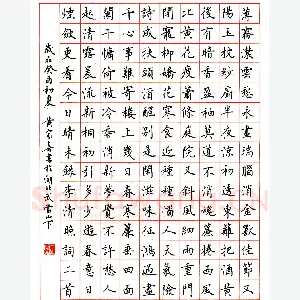 薄霧濃雲愁永晝瑞腦消金獸佳節又重
陽玉枕紗廚半夜涼初透東籬把酒黃昏
後有暗香盈袖莫道不消魂簾捲西風人
比黃花瘦蕭條庭院又斜風細雨重門
須閉寵柳嬌花寒食近種種惱人天氣險
韻詩成扶頭酒醒別是閒滋味征鴻過盡
萬千心事難寄樓上幾日春寒簾垂四面
玉闌干慵倚被冷香消新夢覺不許愁人
不起清露晨流新桐初引多少遊春意日
高煙斂更看今日晴未錄李清照詞二首
歲在癸酉初夏書於湖北武當山下